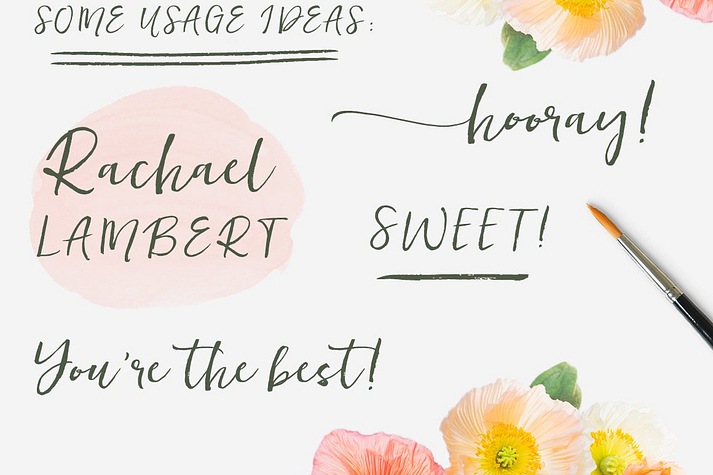 SOME USAGE IDEAS:
hooray!
Rachael
LAMBERT
SWEET!
You're the best!